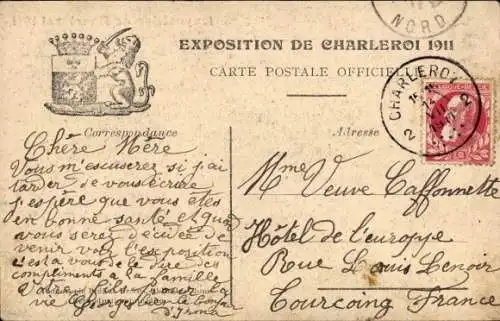 NORD
EXPOSITION DE CHARLEROI 1911
CARTE POSTALE OFFICIELLE
CHARLEROY
2 2
Correspondance
Adresse
Chère Mère
Vous m'escuserez si j'ai
tarder de vous écrire
j'espère que vous etes
en bonne santé et que
vous serez décidée de
venir voir l'exposition
c'est a vous de le dire des
compliments a la famille
Votre fils pour la
vie Georges
d'Irma
Mme Veuve Caffonnette
Hôtel de l'europpe
Rue Louis Lenoir
Tourcoing France